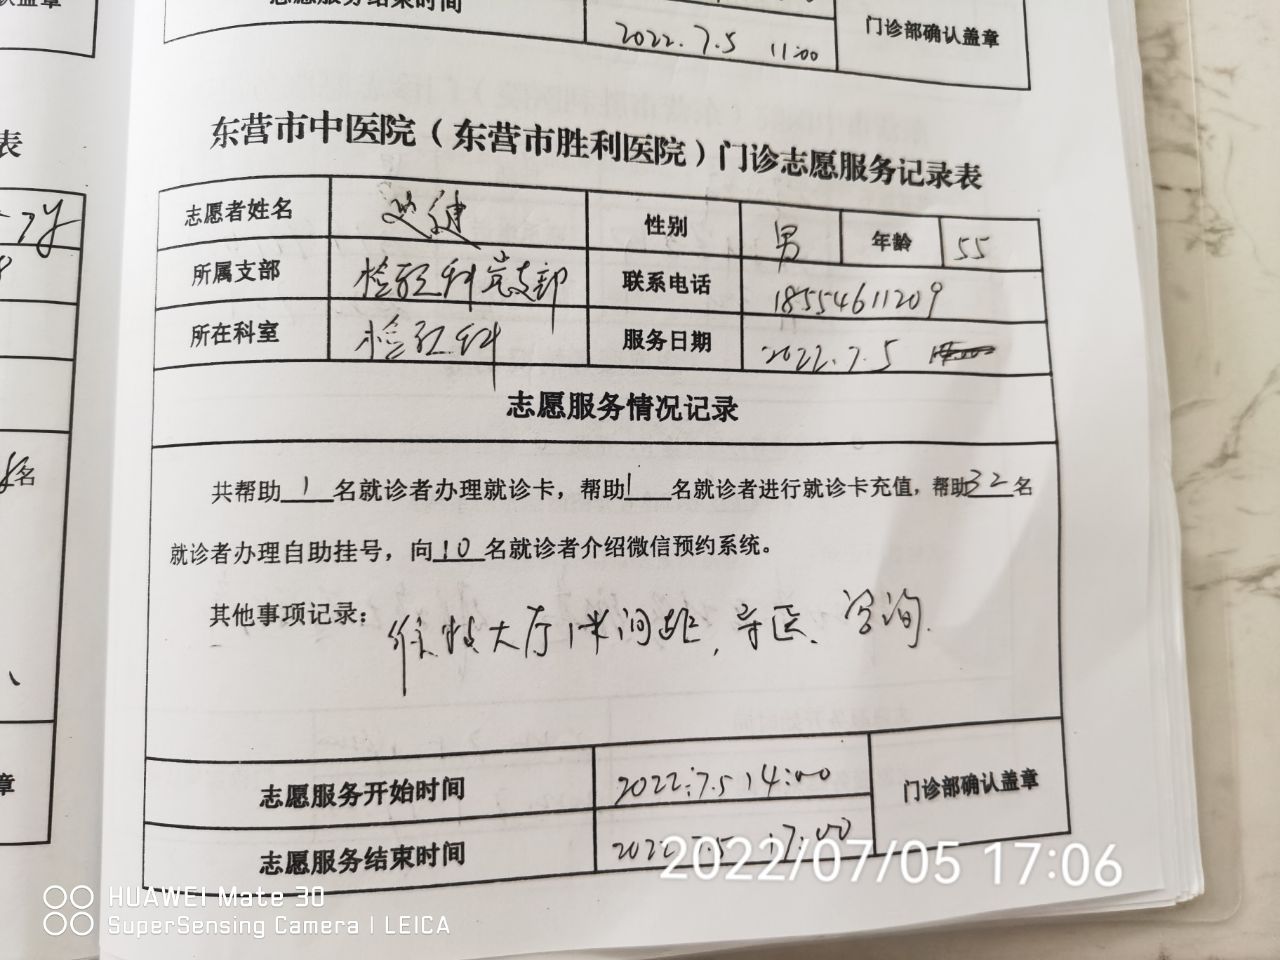 志愿服务结束时间 2022.7.5 11:00 门诊部确认盖章
表
东营市中医院（东营市胜利医院）门诊志愿服务记录表
志愿者姓名 赵健 性别 男 年龄 55
所属支部 检验科党支部 联系电话 18554611209
所在科室 检验科 服务日期 2022.7.5
志愿服务情况记录
共帮助 1 名就诊者办理就诊卡，帮助 1 名就诊者进行就诊卡充值，帮助 32 名
就诊者办理自助挂号，向 10 名就诊者介绍微信预约系统。
其他事项记录：维持大厅1米间距，导医、咨询.
名
章
志愿服务开始时间 2022.7.5 14:00 门诊部确认盖章
志愿服务结束时间 2022.7.5 17:00
2022/07/05 17:06
HUAWEI Mate 30
SuperSensing Camera | LEICA